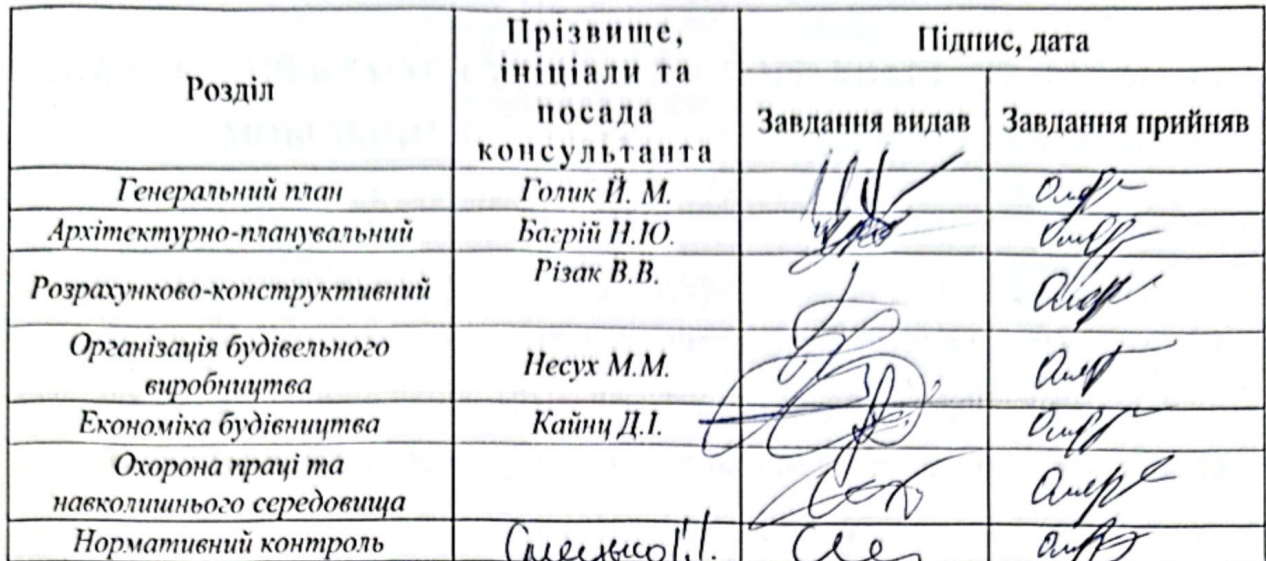 Розділ
Прізвище,
ініціали та
посада
консультанта
Підпис, дата
Завдання видав
Завдання прийняв
Генеральний план
Голик Й. М.
Архітектурно-планувальний
Багрій Н.Ю.
Розрахунково-конструктивний
Різак В.В.
Організація будівельного
виробництва
Несух М.М.
Економіка будівництва
Кайнц Д.І.
Охорона праці та
навколишнього середовища
Нормативний контроль